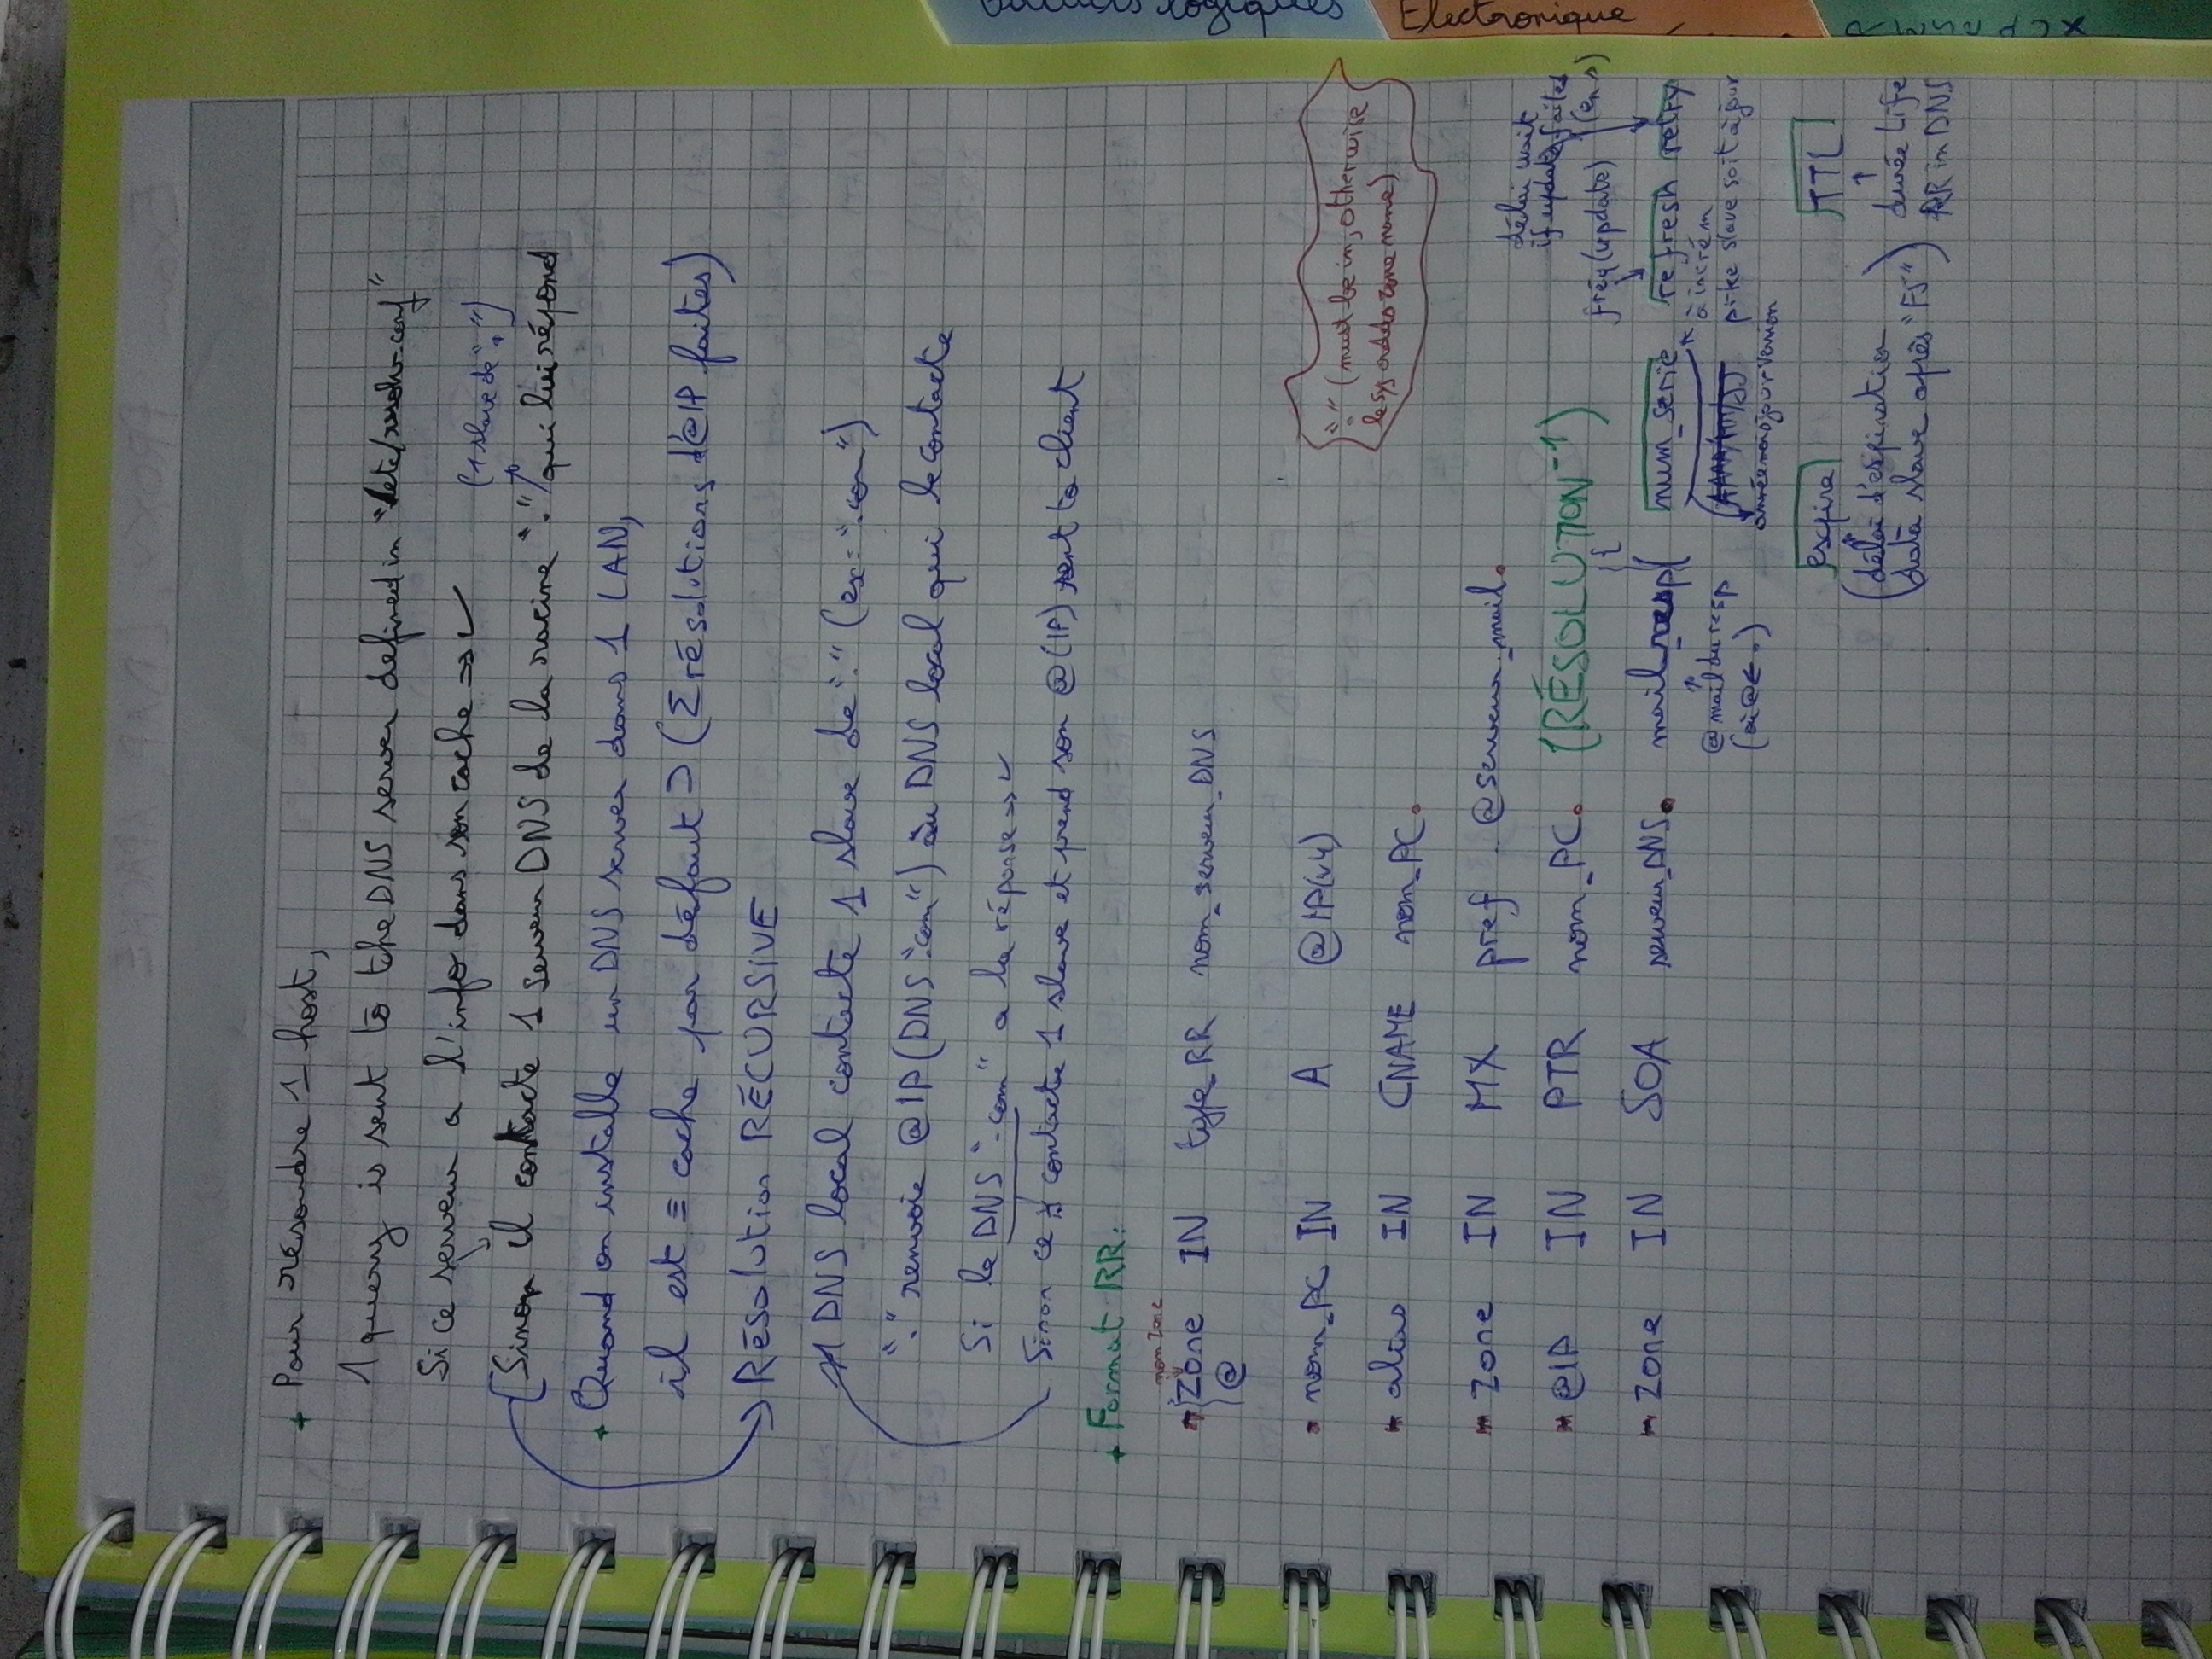 + Pour résoudre 1 host,
1 query is sent to the DNS server defined in "/etc/resolv.conf"
Si ce serveur a l'info dans son cache => ✓
(1 slave de ".")
Sinon il contacte 1 serveur DNS de la racine "." qui lui répond
+ Quand on installe un DNS server dans 1 LAN,
il est ≡ cache par défaut ⊃ (Σ résolutions d'@IP faites)
→ Résolution RÉCURSIVE
1 DNS local contacte 1 slave de "." (ex: ".com")
"." renvoie @IP(DNS ".com") au DNS local qui le contacte
Si le DNS ".com" a la réponse => ✓
Sinon ce contacte 1 slave et prend son @(IP) sent to client
+ Format RR:
nom zone
Zone IN type_RR nom_serveur_DNS
@
nom_PC IN A @IP(v4)
"." (must be in, otherwise
le sys adds zone name)
alias IN CNAME nom_PC.
Zone IN MX pref @serveur_mail.
@IP IN PTR nom_PC. (RÉSOLUTION⁻¹)
délai wait
if update failed
(en s)
freq(update)
Zone IN SOA serveur_DNS. mail_resp( num_serie refresh retry
@mail du resp
(où @ ← .)
AAAA/MM/JJ
annéemoisjourversion
à incrém
pr ke slave soit à jour
expire TTL
(délai d'expiration
data slave après "FS")
durée life
RR in DNS
Electronique
logiques